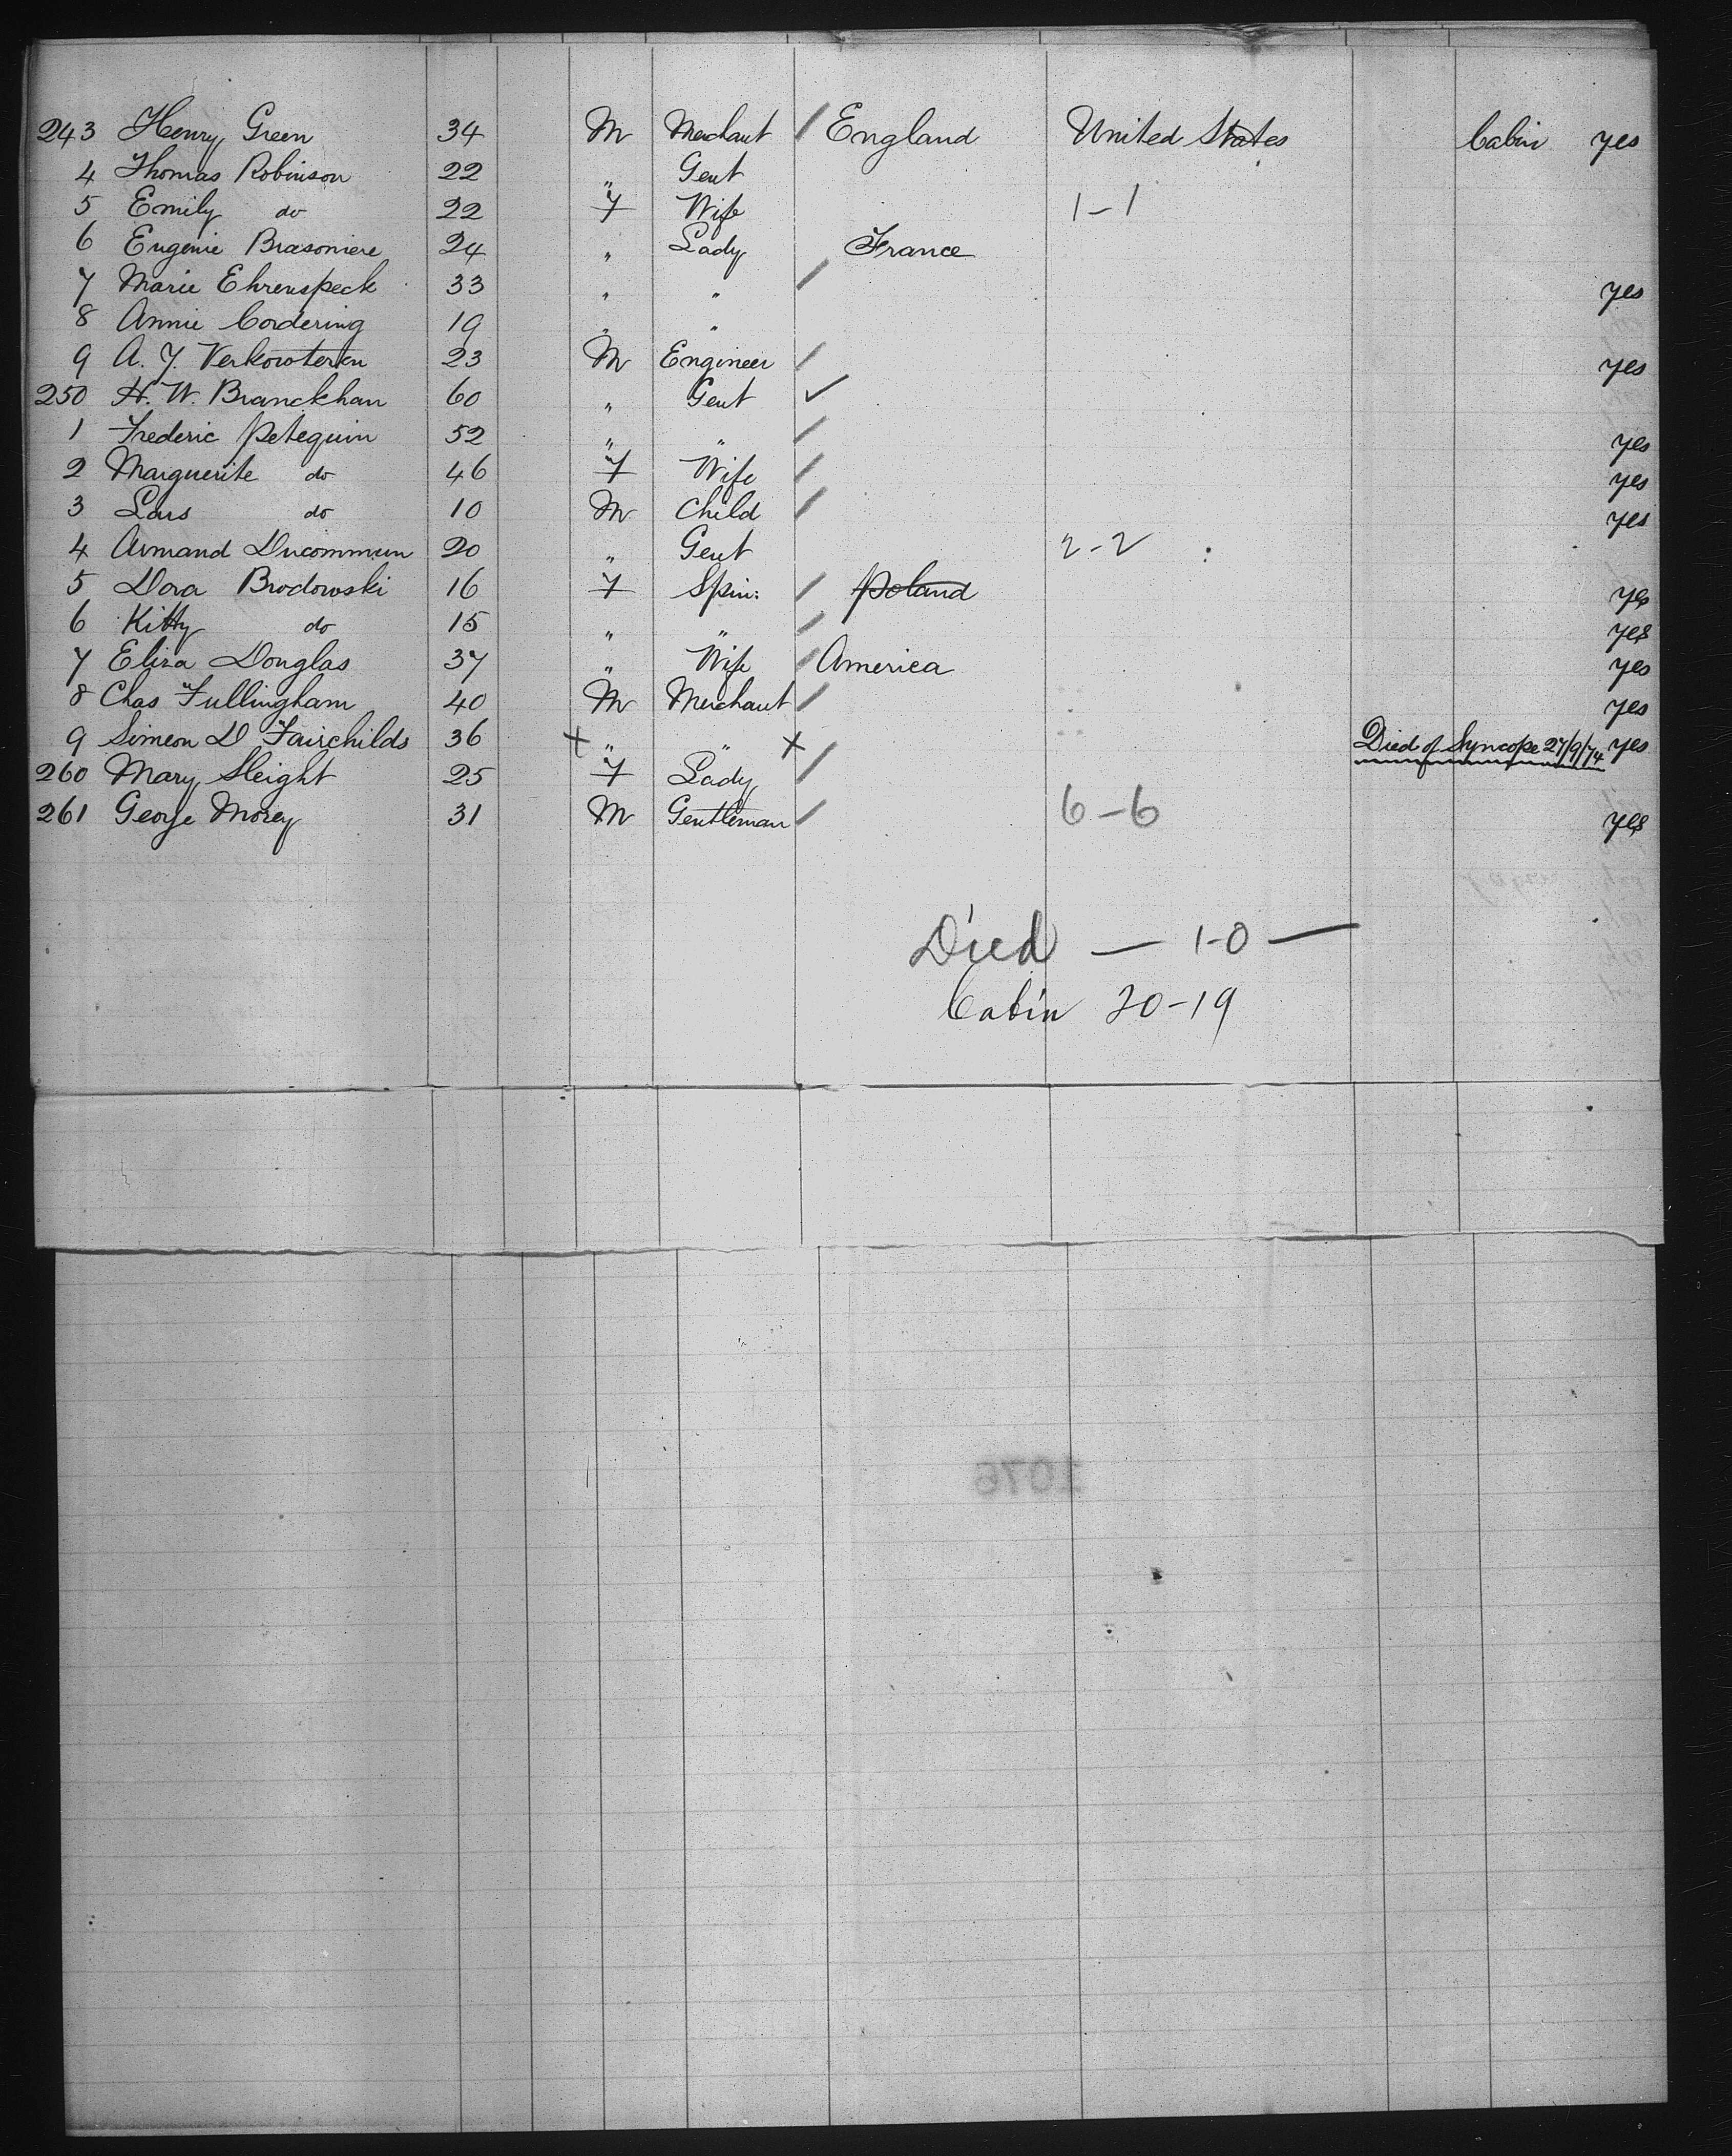 243 Henry Green 34 M Merchant / England United States Cabin yes
4 Thomas Robinson 22 " Gent
5 Emily do 22 F Wife 1-1
6 Eugenie 24 " Lady France
7 Marie Ehrenspeck 33 " " / yes
8 Annie Cordering 19 " "
9 A. J. 23 M Engineer / yes
250 H. W. Branckhan 60 " Gent ✓
1 Frederic Petequin 52 " " / yes
2 Marguerite do 46 F Wife / yes
3 do 10 M Child / yes
4 Armand Ducommun 20 " Gent 2-2
5 Dora Brodowski 16 F Spin: / Poland yes
6 Kitty do 15 " " / yes
7 Eliza Douglas 37 " Wife / America yes
8 Chas Fullingham 40 M Merchant / yes
9 Simeon D Fairchilds 36 x " " x Died of Syncope 27/9/74 yes
260 Mary Sleight 25 F Lady /
261 George Morey 31 M Gentleman / 6-6 yes
Died — 1-0 —
Cabin 20-19
1076